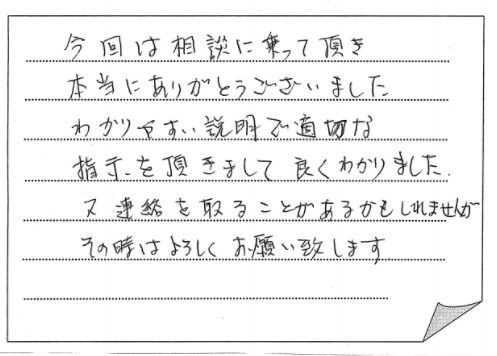 今回は相談に乗って頂き
本当にありがとうございました
わかりやすい説明で適切な
指示を頂きまして良くわかりました.
又連絡を取ることがあるかもしれませんが
その時はよろしくお願い致します